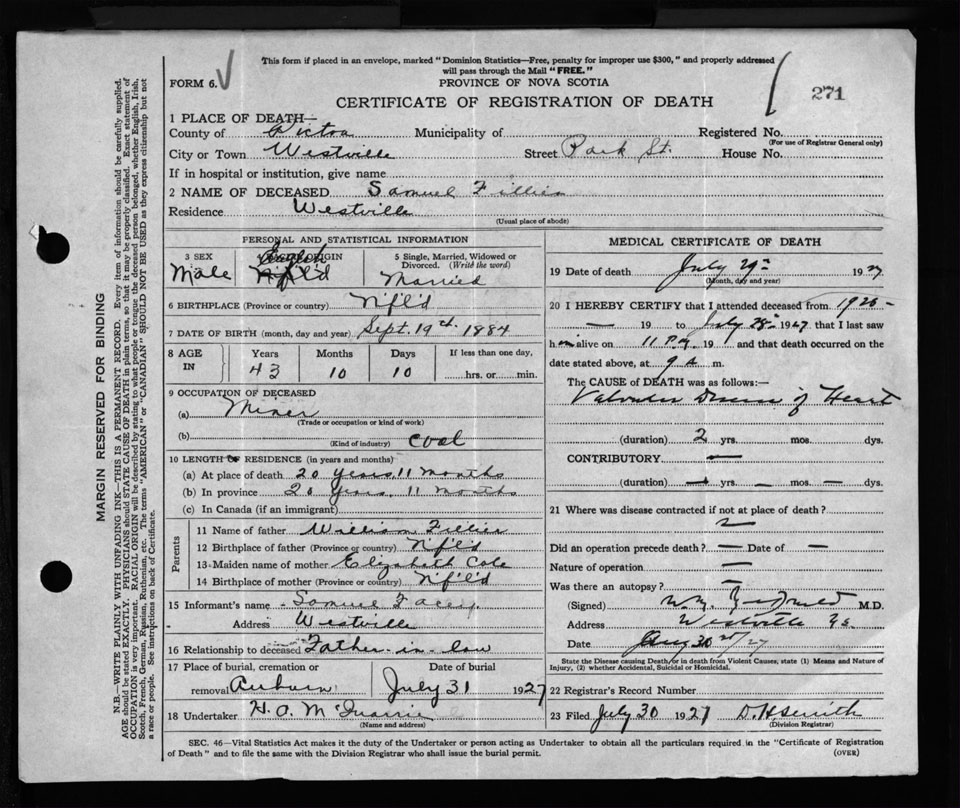 This form if placed in an envelope, marked "Dominion Statistics—Free, penalty for improper use $300," and properly addressed
will pass through the Mail "FREE."
FORM 6.
PROVINCE OF NOVA SCOTIA
CERTIFICATE OF REGISTRATION OF DEATH
271
1 PLACE OF DEATH—
County of Pictou Municipality of Registered No.
(For use of Registrar General only)
City or Town Westville Street Park St. House No.
If in hospital or institution, give name
2 NAME OF DECEASED Samuel Fillier
Residence Westville
(Usual place of abode)
PERSONAL AND STATISTICAL INFORMATION
3 SEX ORIGIN 5 Single, Married, Widowed or
Divorced. (Write the word)
Male English Nfl'd Married
6 BIRTHPLACE (Province or country) Nfl'd
7 DATE OF BIRTH (month, day and year) Sept. 19th. 1884
8 AGE IN Years Months Days If less than one day,
43 10 10 hrs. or min.
9 OCCUPATION OF DECEASED
(a) Miner
(Trade or occupation or kind of work)
(b) Coal
(Kind of industry)
10 LENGTH OF RESIDENCE (in years and months)
(a) At place of death 20 Years, 11 months
(b) In province 20 Years, 11 months
(c) In Canada (if an immigrant)
Parents
11 Name of father William Fillier
12 Birthplace of father (Province or country) Nfl'd
13 Maiden name of mother Elizabeth Cole
14 Birthplace of mother (Province or country) Nfl'd
15 Informant's name Samuel Facey
Address Westville
16 Relationship to deceased Father-in-law
17 Place of burial, cremation or Date of burial
removal Auburn July 31 1927
18 Undertaker H. O. McQuarrie
(Name and address)
MEDICAL CERTIFICATE OF DEATH
19 Date of death July 29th 1927
(Month, day and year)
20 I HEREBY CERTIFY that I attended deceased from 1926-
— 19 to July 28th 1927 that I last saw
him alive on 11 P.M. 19 and that death occurred on the
date stated above, at 9 A. m.
The CAUSE of DEATH was as follows:—
Valvular Disease of Heart
(duration) 2 yrs. mos. dys.
CONTRIBUTORY —
(duration) — yrs. — mos. — dys.
21 Where was disease contracted if not at place of death?
Did an operation precede death? — Date of —
Nature of operation —
Was there an autopsy? —
(Signed) M.D.
Address Westville N.S.
Date 30 /27
State the Disease causing Death, or in death from Violent Causes, state (1) Means and Nature of
Injury, (2) whether Accidental, Suicidal or Homicidal.
22 Registrar's Record Number
23 Filed July 30 1927 D. H. Smith
(Division Registrar)
SEC. 46—Vital Statistics Act makes it the duty of the Undertaker or person acting as Undertaker to obtain all the particulars required in the "Certificate of Registration
of Death" and to file the same with the Division Registrar who shall issue the burial permit.
(OVER)
MARGIN RESERVED FOR BINDING
N.B.—WRITE PLAINLY WITH UNFADING INK—THIS IS A PERMANENT RECORD. Every item of information should be carefully supplied.
AGE should be stated EXACTLY. PHYSICIANS should STATE CAUSE OF DEATH in plain terms, so that it may be properly classified. Exact statement of
OCCUPATION is very important. RACIAL ORIGIN will be described by stating to what people or tongue the deceased person belonged, whether English, Irish,
Scotch, French, German, Russian, Ruthenian, etc. The terms "AMERICAN" or "CANADIAN" SHOULD NOT BE USED as they express citizenship but not
a race or people. See instructions on back of Certificate.